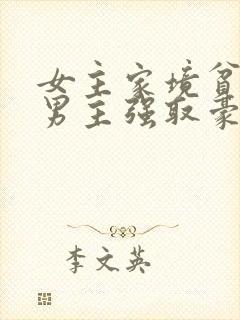 女主家境贫
男主强取豪
李文英